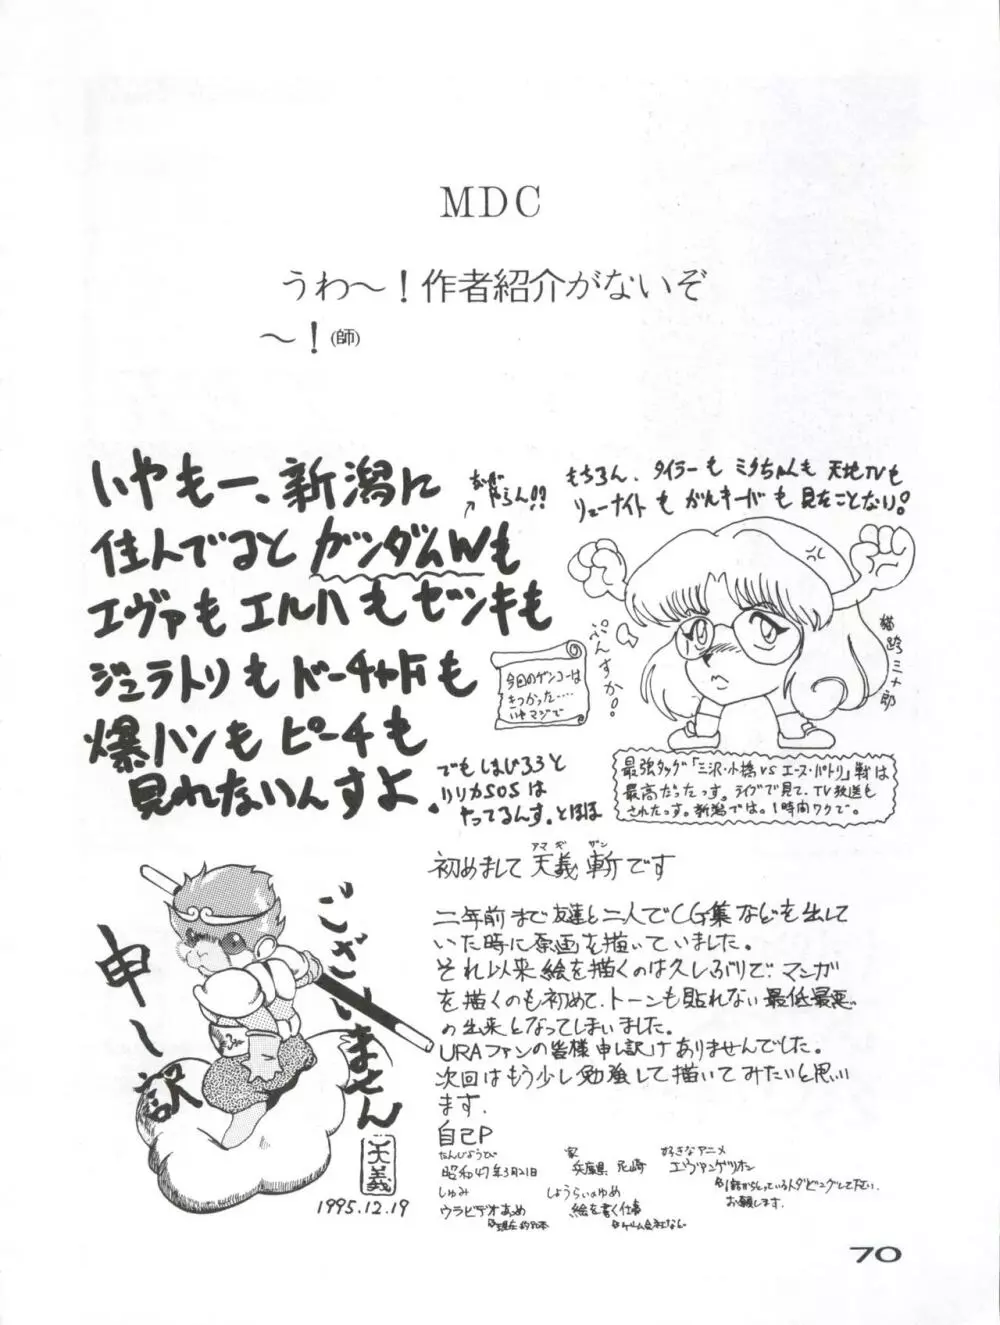 MDC
うわ～！作者紹介がないぞ
～！(師)
いやもー、新潟に
住んでるとガンダムWも
エヴァもエルハもゼンキも
ジュラトリもバーチャFiも
爆ハンもピーチも
見れないんすよ。
もちろん、タイラーもミクちゃんも天地TVも
リューナイトもがルキーバも見たことない!
ぷんすか!
猫路三十郎
今回のゲンコーは
きつかった‥‥
いやマジで
でもしましろうと
リリカSOSは
やってるんす。とほほ
最強タッグ「三沢・小橋VSエース・パトリ」戦は
最高だったっす。ライブで見て、TV放送も
されたっす。新潟では。1時間ワクで。
初めまして天義斬です
アマギザン
二年前まで友達と二人でCG集などを出して
いた時に原画を描いていました。
それ以来絵を描くのは久しぶりで、マンガ
を描くのも初めて、トーンも貼れない最低最悪
の出来となってしまいました。
URAファンの皆様申し訳けありませんでした。
次回はもう少し勉強して描いてみたいと思い
ます.
自己P
たんじょうび
昭和47年3月21日
家
兵庫県 尼崎
好きなアニメ
エヴァンゲリオン
1話からとっている人ダビングして下さい.
お願します.
しゅみ
ウラビデオあつめ
現在約70本
しょうらいのゆめ
絵を書く仕事
ゲーム会社など
申し訳
ございません
天義
1995.12.19
70